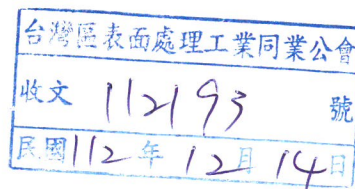 台灣區表面處理工業同業公會
收文 112193 號
民國 112 年 12 月 14 日